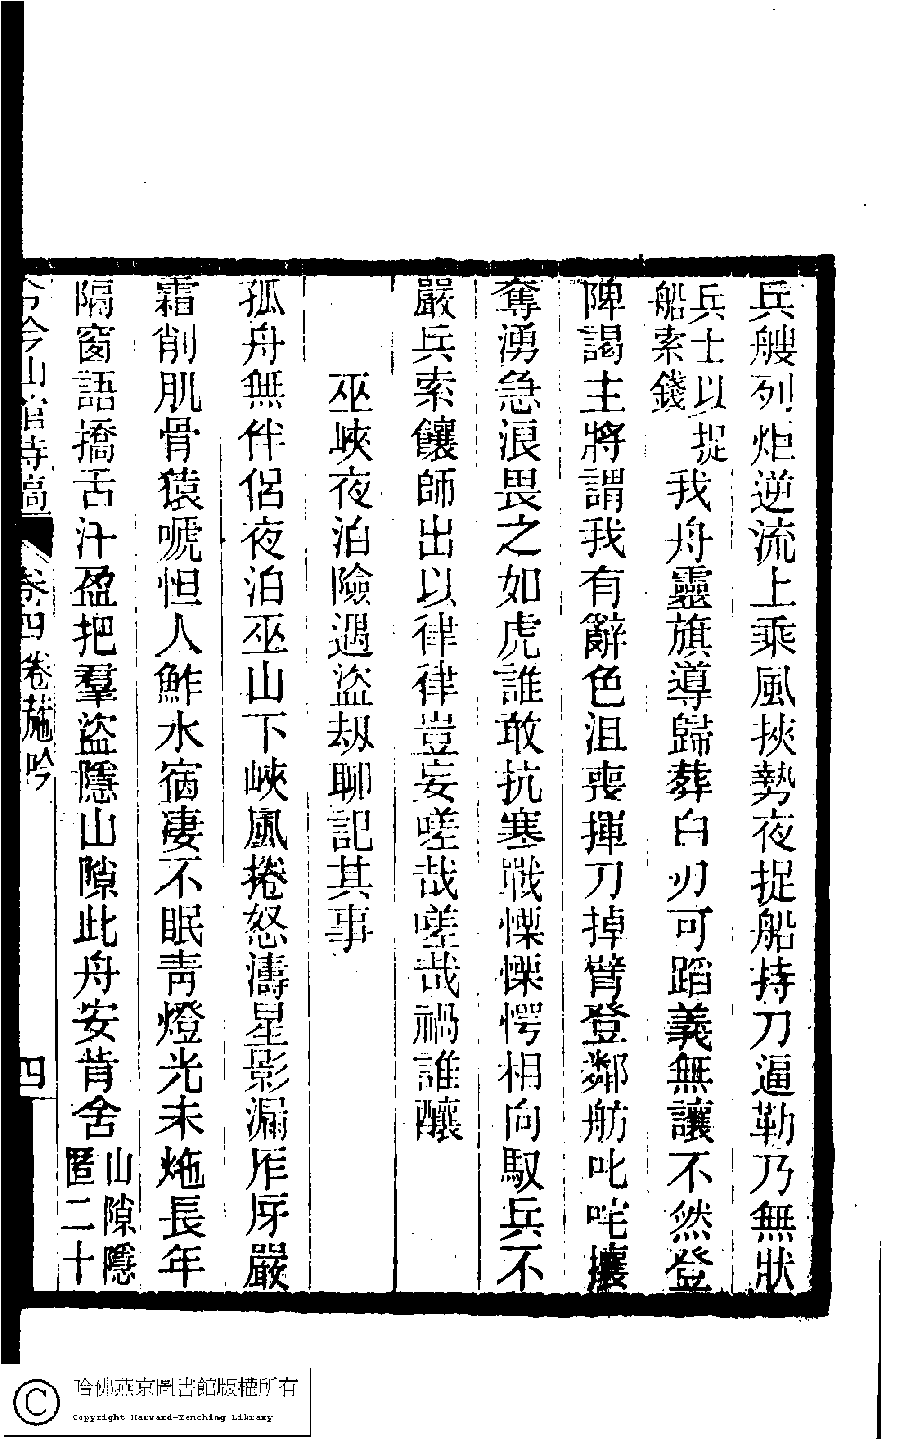 兵艘列炬逆流上乘風挾勢夜捉船持刀逼勒乃無狀
兵士以捉
船索錢
我舟靈旗導歸葬白刃可蹈義無讓不然登
陴謁主將謂我有辭色沮喪揮刀掉臂登鄰舫叱咤攘
奪湧急浪畏之如虎誰敢抗塞戰慄慄愕相向馭兵不
嚴兵索饟師出以律律豈妄嗟哉嗟哉禍誰釀
巫峽夜泊險遇盜劫聊記其事
孤舟無伴侶夜泊巫山下峽風捲怒濤星影漏厏厊嚴
霜削肌骨猿嗁怛人鮓水宿凄不眠青燈光未灺長年
隔窗語撟舌汗盈把羣盜隱山隙此舟安肯舍
山隙隱
匿二十
山館詩稿 卷四 卷葹吟
四
哈佛燕京圖書館版權所有
Copyright Harvard-Yenching Library